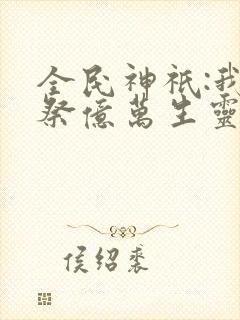 全民神祇:我
祭億萬生靈
侯紹裘